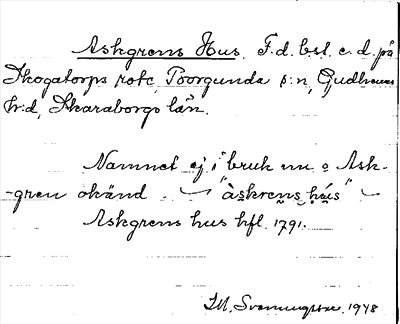 Askgrens Hus. F.d. bst. e.d. på
Skogatorps rote, Poorgunda s:n, Gudhems
h:d, Skaraborgs län.
Namnet ej i bruk nu o Ask-
-gren okänd. — "àskrens hús" —
Askgrens hus hfl. 1791.
1948